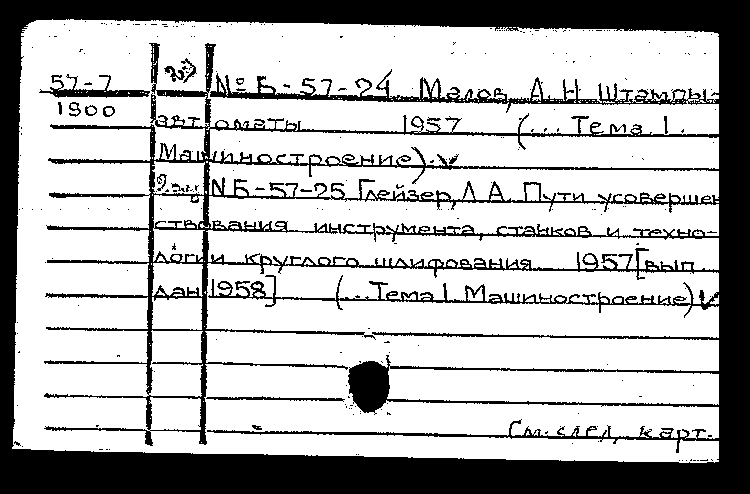 57-7 2экз № Б-57-24 Малов, А. Н. Штампы-
1900 автоматы 1957 (... Тема 1.
Машиностроение).v
2экз N Б-57-25 Глейзер, Л. А. Пути усовершен
ствования инструмента, станков и техно-
логии круглого шлифования 1957 [вып.
дан 1958] (... Тема 1. Машиностроение) v
См. след. карт.